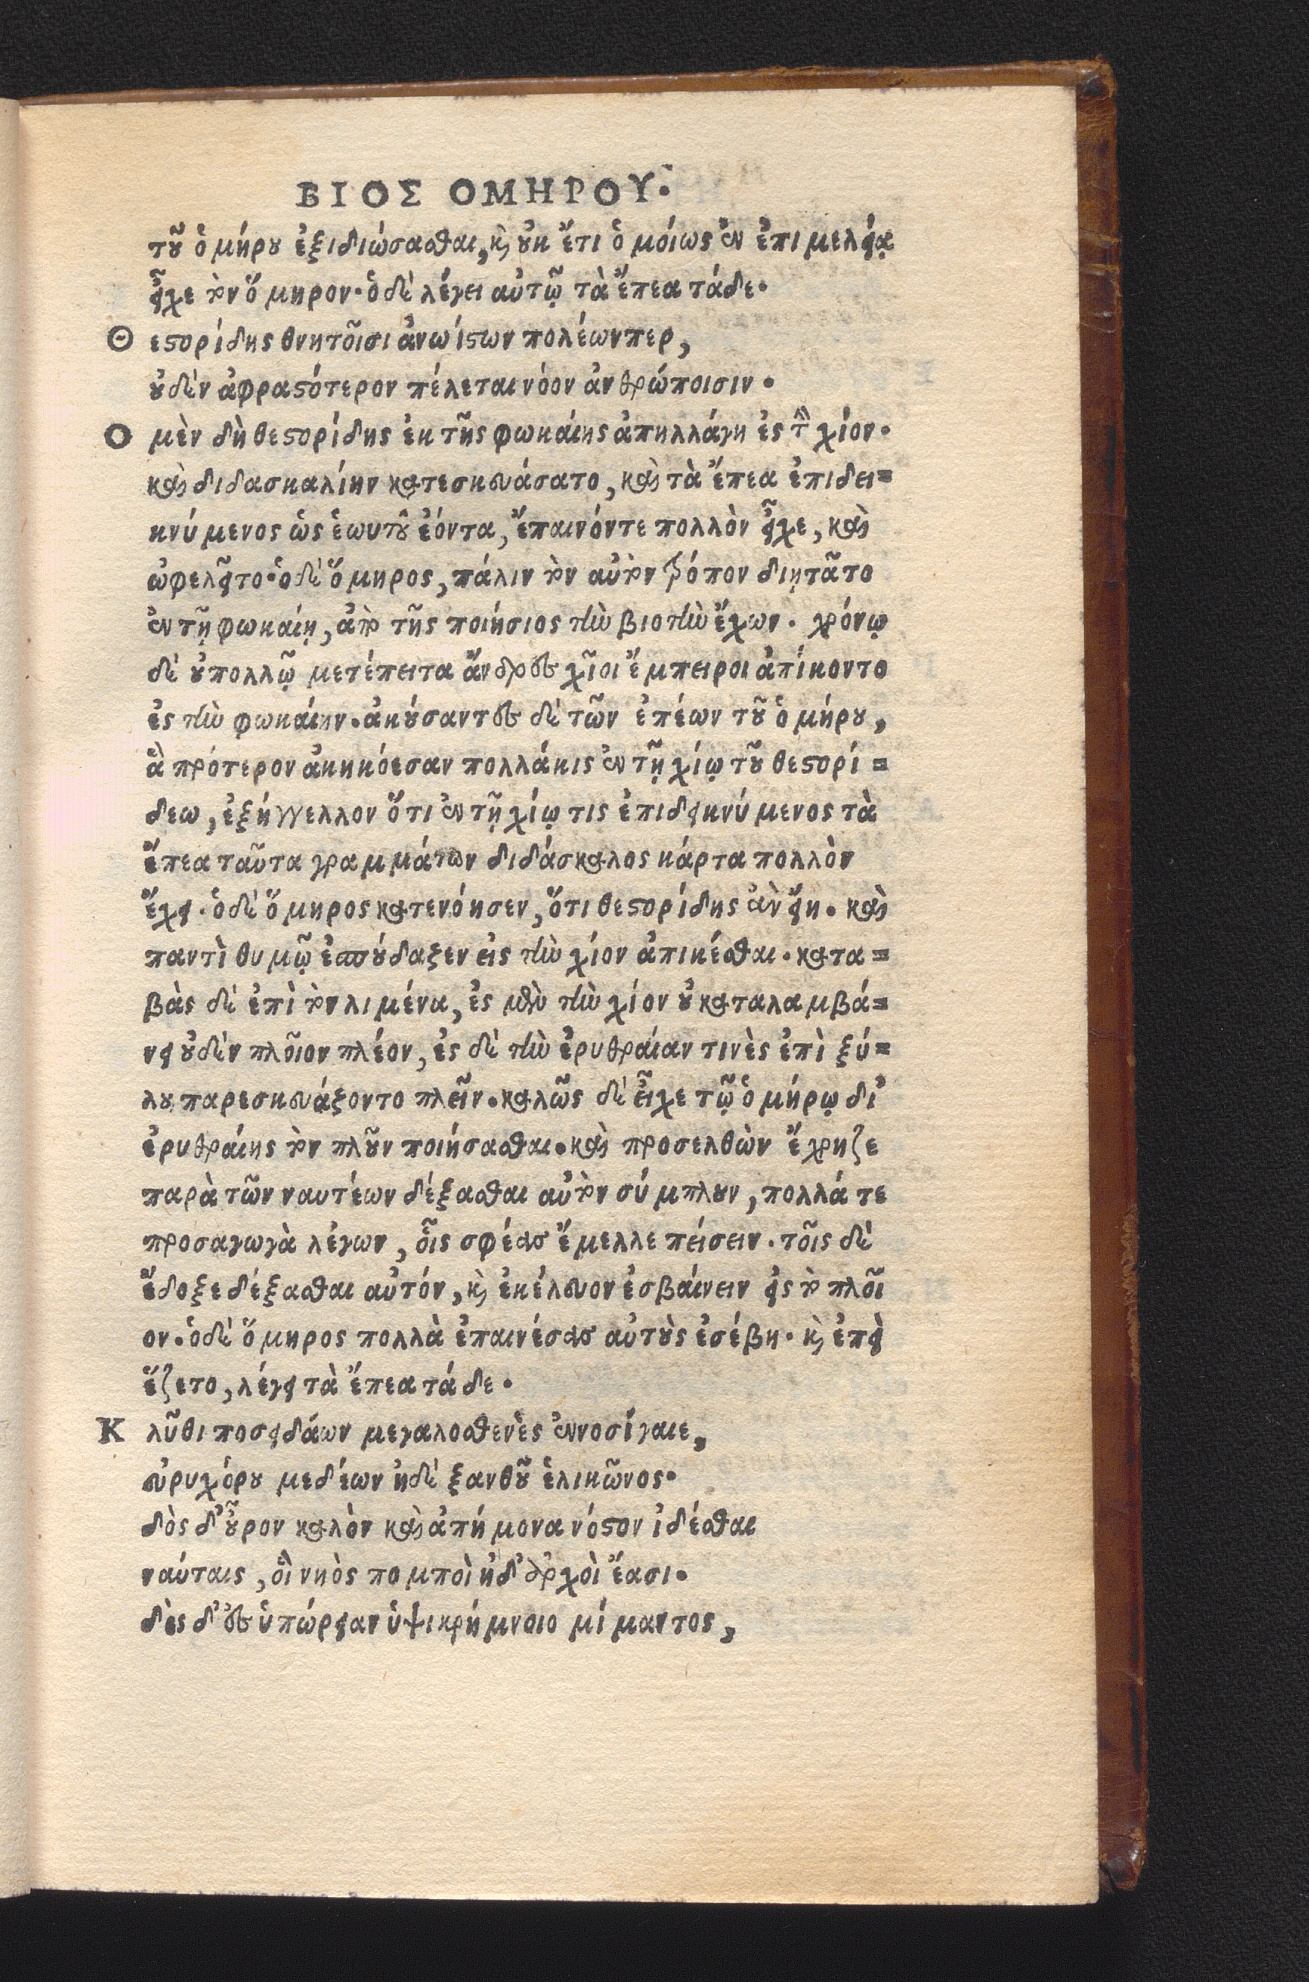 ΒΙΟΣ ΟΜΗΡΟΥ.
τοῦ ὁμήρου ἐξιδιώσασθαι, καὶ οὐκ ἔτι ὁμοίως ἐν ἐπιμελείᾳ
εἶχε τὸν ὅμηρον. ὁ δὲ λέγει αὐτῷ τὰ ἔπεα τάδε.
Θεστορίδης θνητοῖσι ἀνωίστων πολέωνπερ,
οὐδὲν ἀφραστότερον πέλεται νόον ἀνθρώποισιν.
Ο μὲν δὴ θεστορίδης ἐκ τῆς φωκαίης ἀπηλλάγη ἐς τὴν χίον.
καὶ διδασκαλίην κατεσκευάσατο, καὶ τὰ ἔπεα ἐπιδει=
κνύμενος ὡς ἑωυτοῦ ἐόντα, ἔπαινόντε πολλὸν εἶχε, καὶ
ὠφελεῖτο. ὁ δὲ ὅμηρος, πάλιν τὸν αὐτὸν τρόπον διῃτᾶτο
ἐν τῇ φωκαίῃ, ἀπὸ τῆς ποιήσιος τὴν βιοτὴν ἔχων. χρόνῳ
δὲ οὐπολλῷ μετέπειτα ἄνδρες χῖοι ἔμπειροι ἀπίκοντο
ἐς τὴν φωκαίην. ἀκούσαντες δὲ τῶν ἐπέων τοῦ ὁμήρου,
ἃ πρότερον ἀκηκόεσαν πολλάκις ἐν τῇ χίῳ τοῦ θεστορί=
δεω, ἐξήγγελλον ὅτι ἐν τῇ χίῳ τις ἐπιδεικνύμενος τὰ
ἔπεα ταῦτα γραμμάτων διδάσκαλος κάρτα πολλὸν
ἔχει. ὁ δὲ ὅμηρος κατενόησεν, ὅτι θεστορίδης ἂν εἴη. καὶ
παντὶ θυμῷ ἐσπούδαξεν εἰς τὴν χίον ἀπικέσθαι. κατα=
βὰς δὲ ἐπὶ τὸν λιμένα, ἐς μὲν τὴν χίον οὐ καταλαμβά=
νει οὐδὲν πλοῖον πλέον, ἐς δὲ τὴν ἐρυθραίαν τινὲς ἐπὶ ξύ=
λου παρεσκευάξοντο πλεῖν. καλῶς δὲ εἶχε τῷ ὁμήρῳ δι᾽
ἐρυθραίης τὸν πλοῦν ποιήσασθαι. καὶ προσελθὼν ἔχρηζε
παρὰ τῶν ναυτέων δέξασθαι αὐτὸν σύμπλουν, πολλά τε
προσαγωγὰ λέγων, οἷς σφέας ἔμελλε πείσειν. τοῖς δὲ
ἔδοξε δέξασθαι αὐτόν, καὶ ἐκέλευον ἐσβαίνειν εἰς τὸ πλοῖ
ον. ὁ δὲ ὅμηρος πολλὰ ἐπαινέσας αὐτοὺς ἐσέβη. καὶ ἐπεὶ
ἕζετο, λέγει τὰ ἔπεα τάδε.
Κλῦθι ποσειδάων μεγαλοσθενὲς ἐννοσίγαιε,
εὐρυχόρου μεδέων ἠδὲ ξανθοῦ ἑλικῶνος.
δὸς δ᾽ οὖρον καλὸν καὶ ἀπήμονα νόστον ἰδέσθαι
ναύταις, οἳ νηὸς πομποὶ ἠδ᾽ ἀρχοὶ ἔασι.
δὸς δ᾽ ἐς ὑπώρειαν ὑψικρήμνοιο μίμαντος,